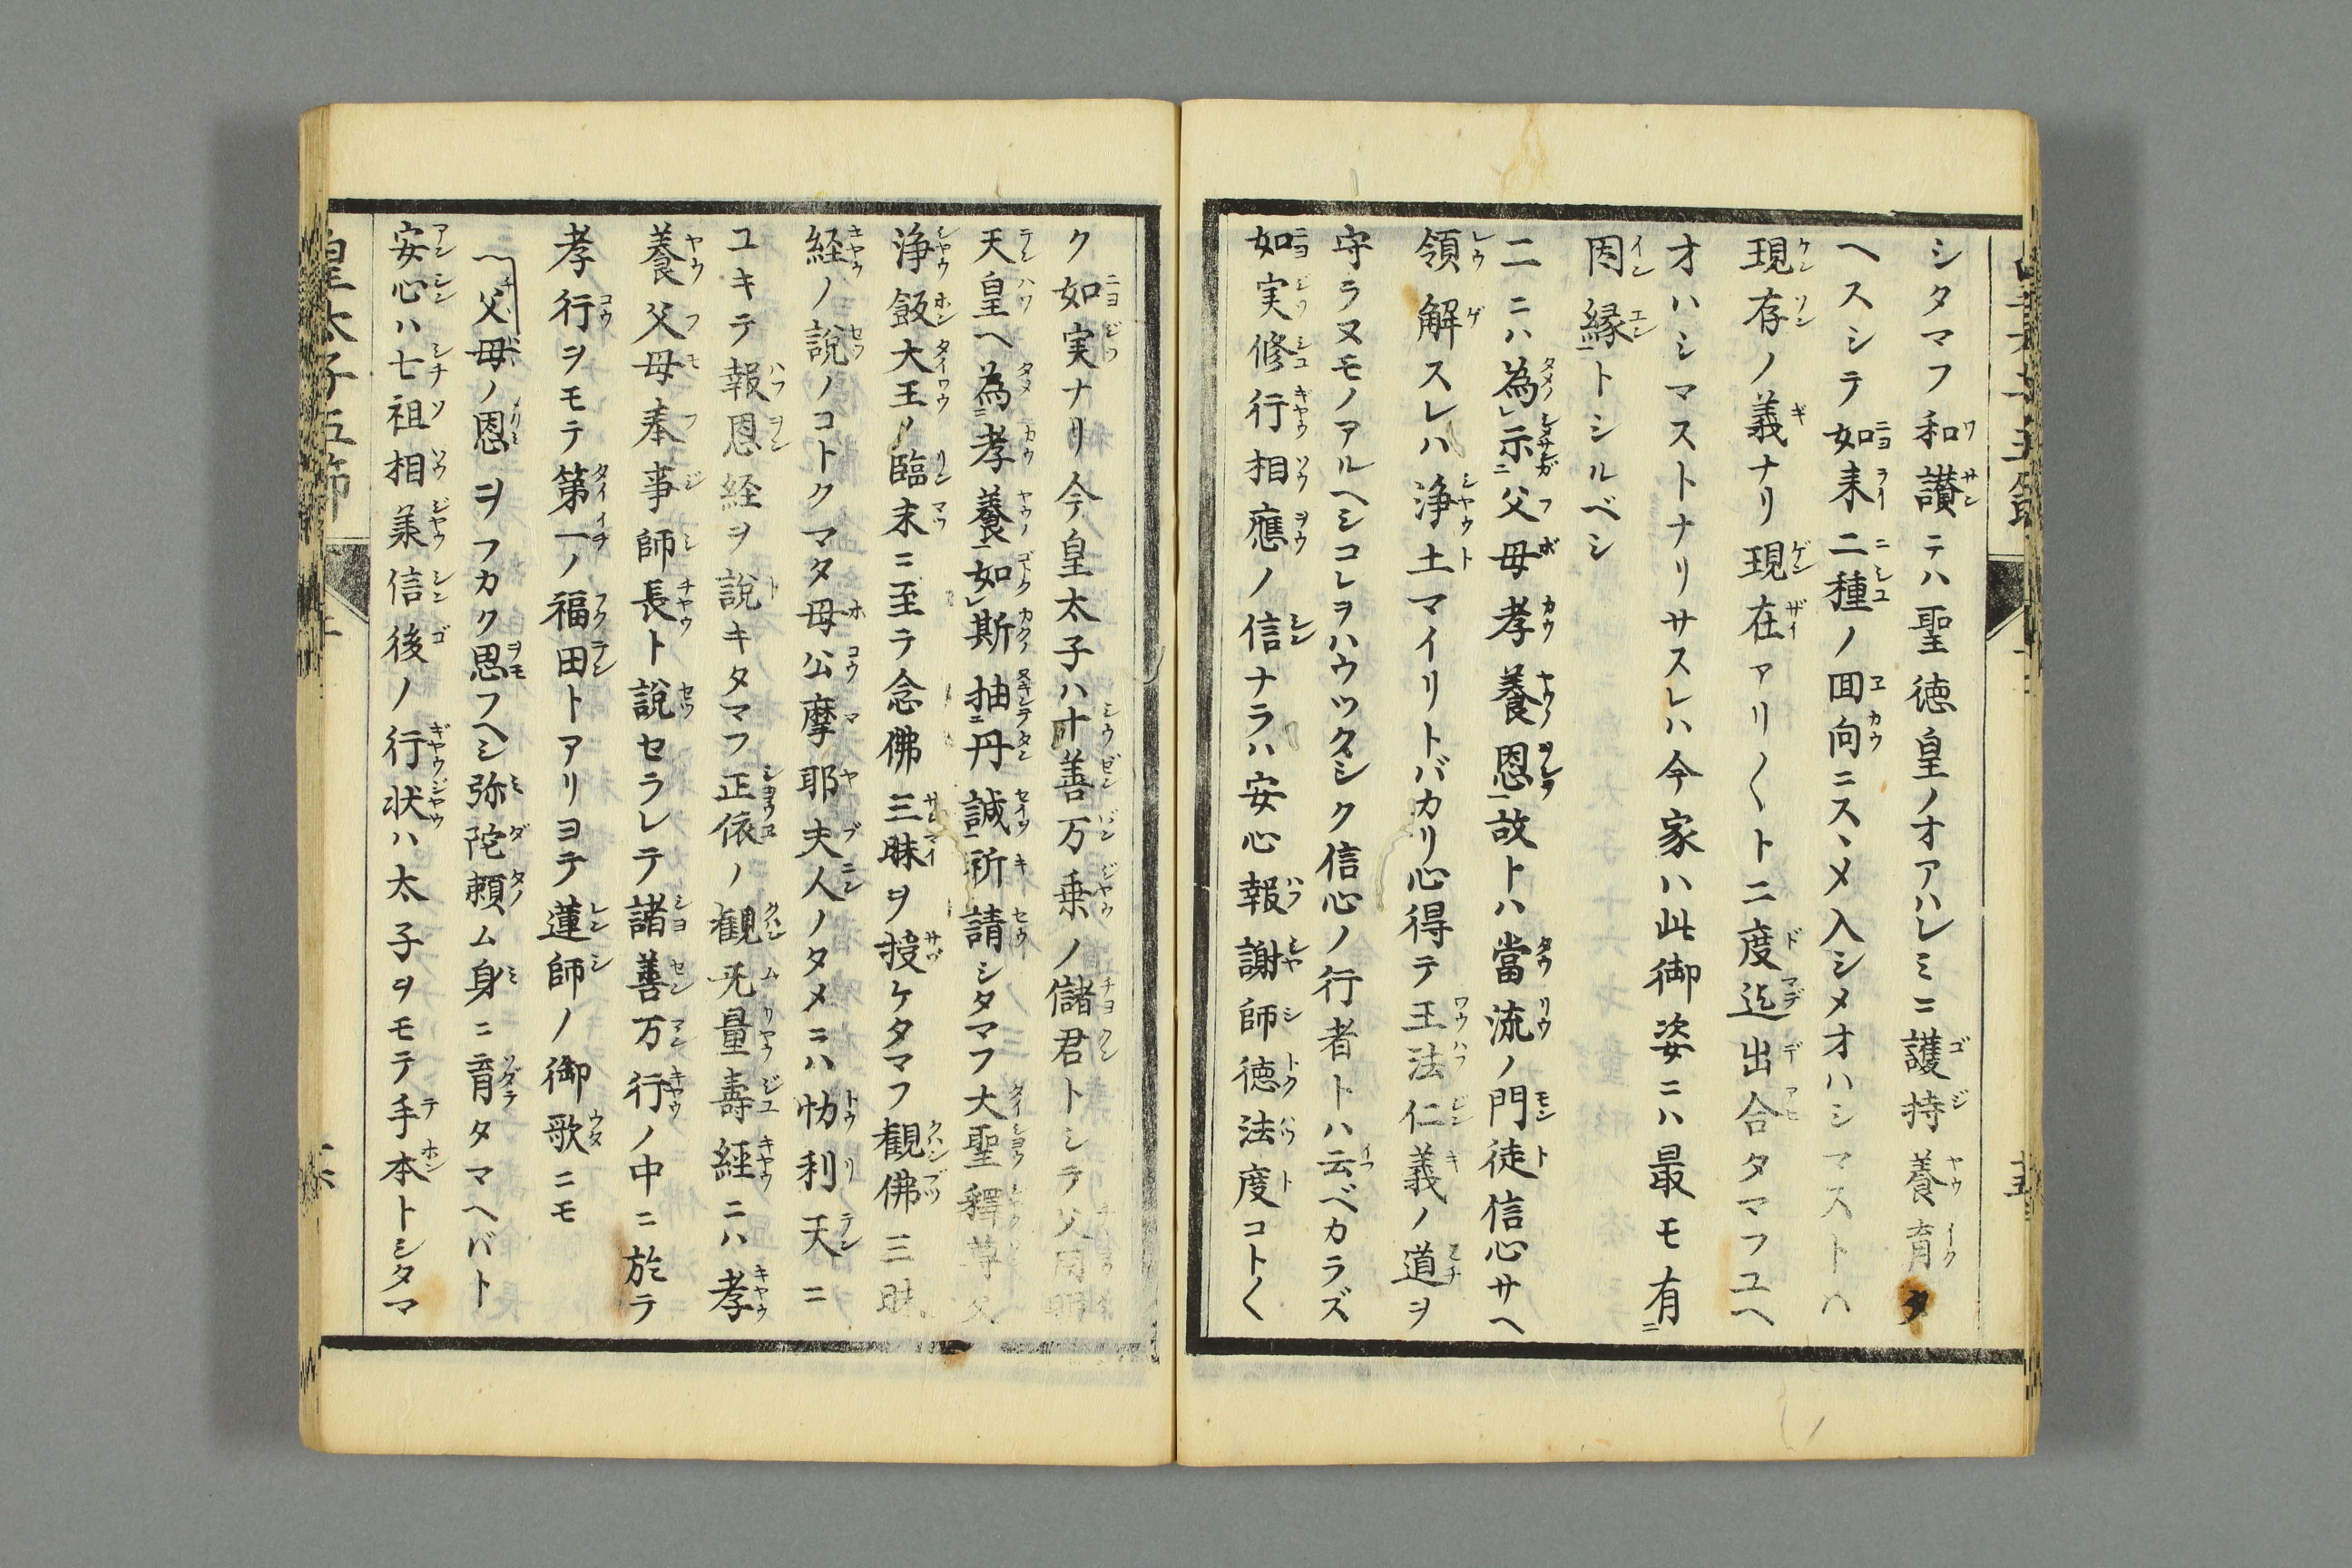 シタマフ和讃テハ聖徳皇ノオアハレミニ護持養育タ
ヘスシテ如来二種ノ回向ニスヽメ入シメオハシマストハ
現存ノ義ナリ現在アリ〳〵ト二度迄出合タマフユヘ
オハシマストナリサスレハ今家ハ此御姿ニハ最モ有ニ
因縁一トシルベシ
二ニハ為レ示ニ父母孝養恩一故トハ當流ノ門徒信心サヘ
領解スレハ浄土マイリトバカリ心得テ王法仁義ノ道ヲ
守ラヌモノアルヘシコレヲハウツクシク信心ノ行者トハ云ベカラズ
如実修行相應ノ信ナラハ安心報謝師徳法度コト〳〵
ク如実ナリ今皇太子ハ十善万乗ノ儲君トシテ父用明
天皇ヘ為ニ孝養一如レ斯抽ニ丹誠一祈請シタマフ大聖釋尊父
浄飯大王ノ臨末ニ至テ念佛三昧ヲ授ケタマフ観佛三昧
経ノ說ノコトクマタ母公摩耶夫人ノタメニハ忉利天ニ
ユキテ報恩経ヲ說キタマフ正依ノ観无量壽経ニハ孝
養父母奉事師長ト說セラレテ諸善万行ノ中ニ於テ
孝行ヲモテ第一ノ福田トアリヨテ蓮師ノ御歌ニモ
〽父母ノ恩ヲフカク思フヘシ弥陀頼ム身ニ育タマヘバト
安心ハ七祖相羕信後ノ行状ハ太子ヲモテ手本トシタマ
皇太子五節